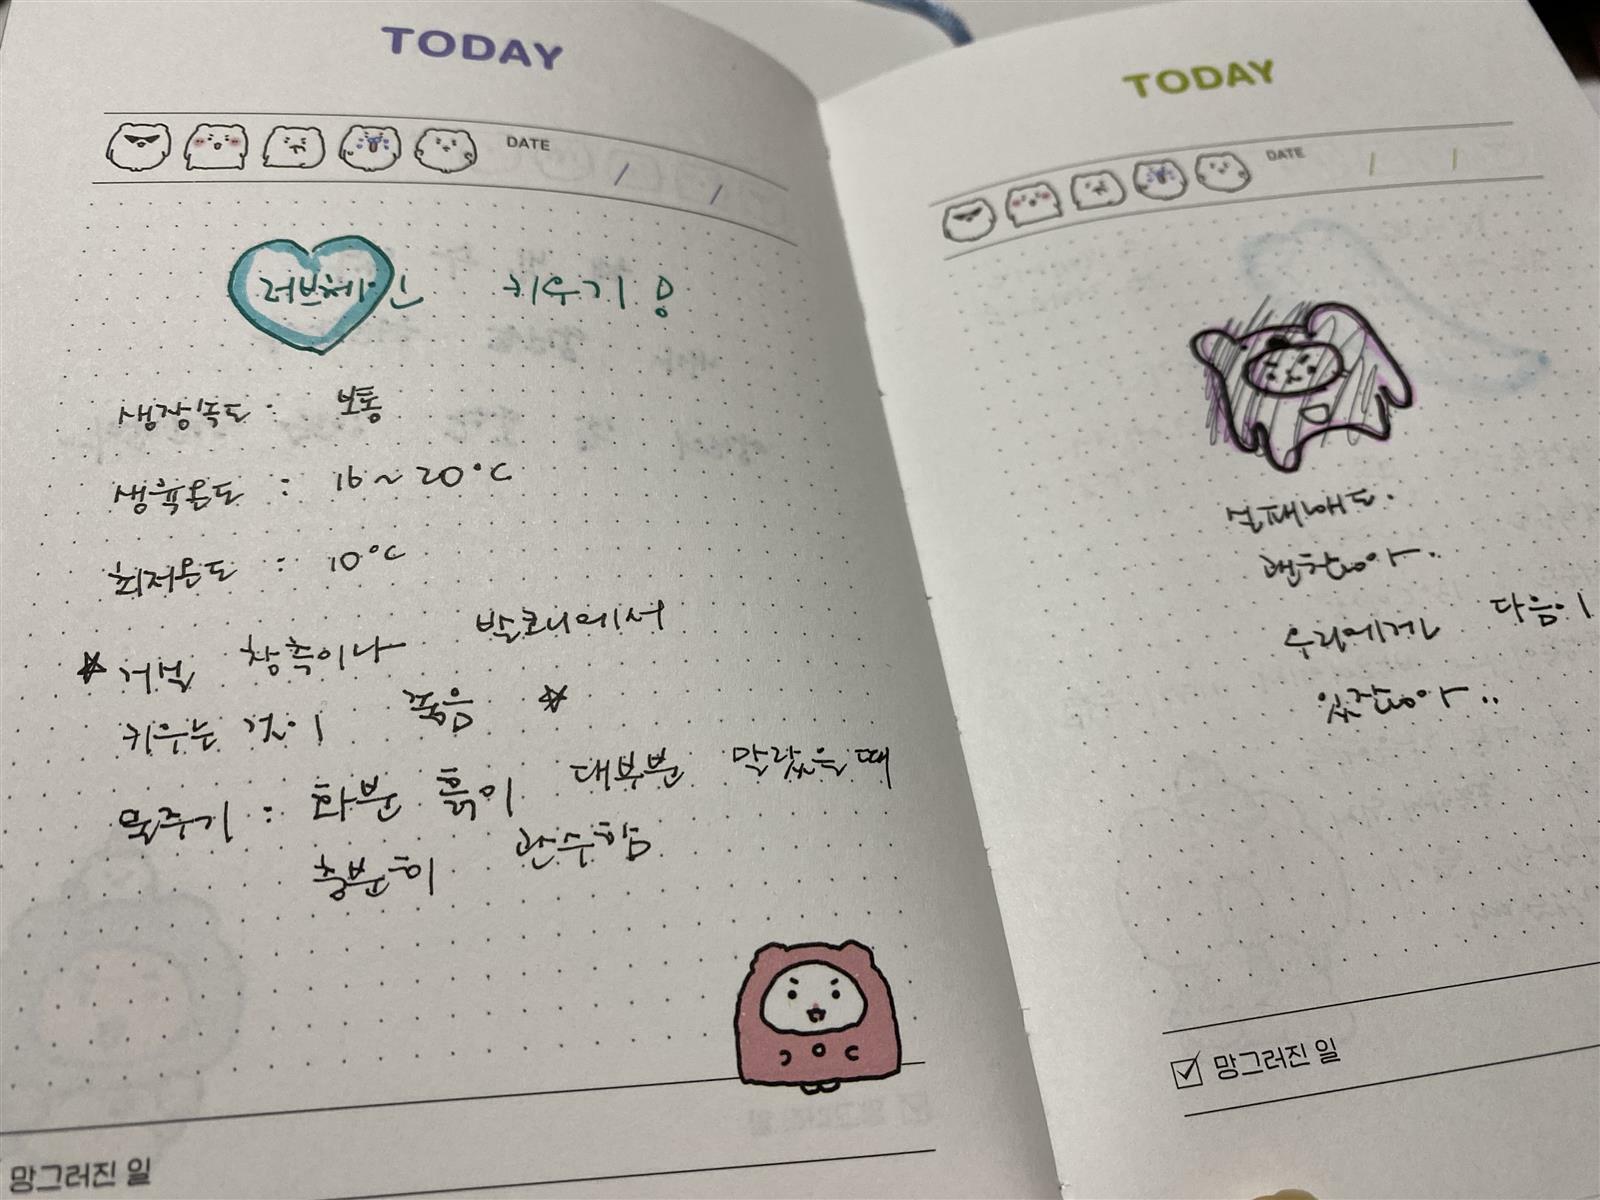 TODAY
DATE / /
러브체인 키우기!
생장속도 : 보통
생육온도 : 16~20°C
최저온도 : 10°C
☆ 거실 창측이나 발코니에서
키우는 것이 좋음 ☆
물주기 : 화분 흙이 대부분 말랐을때
충분히 관수함
망그러진 일
TODAY
DATE / /
실패해도.
괜찮아..
우리에게 다음이
있잖아..
망그러진 일